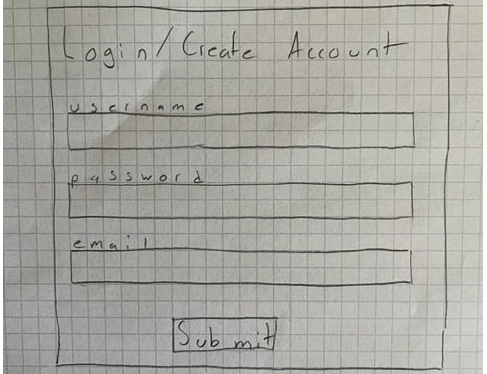 Login/Create Account
username
password
email
Submit